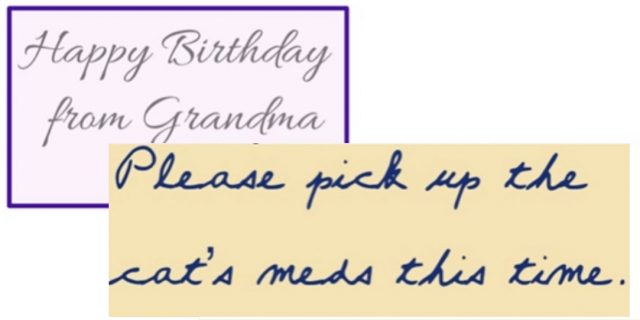 Happy Birthday
from Grandma
Please pick up the
cat's meds this time.